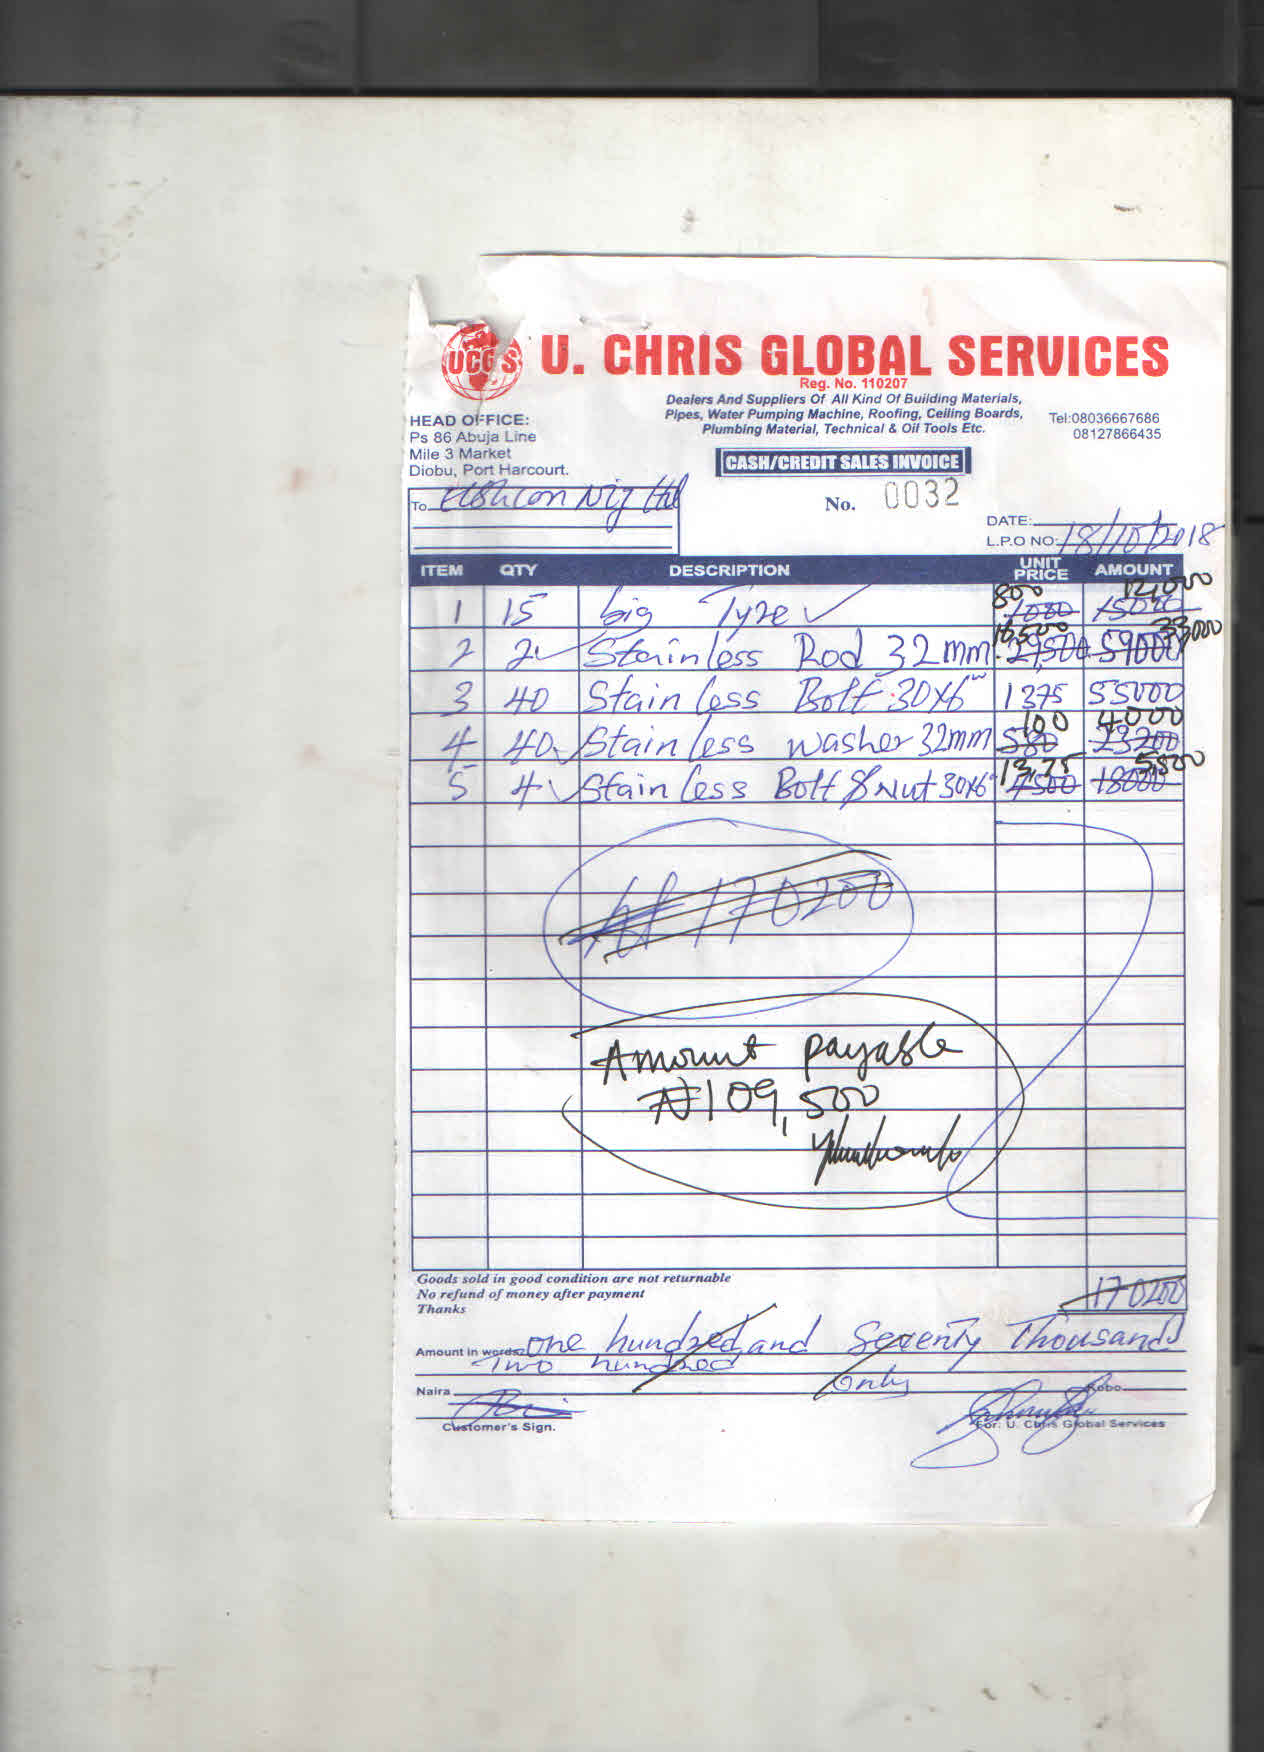 UCGS U. CHRIS GLOBAL SERVICES
Reg. No. 110207
Dealers And Suppliers Of All Kind Of Building Materials,
Pipes, Water Pumping Machine, Roofing, Ceiling Boards,
Plumbing Material, Technical & Oil Tools Etc.
Tel:08036667686
08127866435
HEAD OFFICE:
Ps 86 Abuja Line
Mile 3 Market
Diobu, Port Harcourt.
CASH/CREDIT SALES INVOICE
To Nig Ltd
No. 0032
DATE:
L.P.O NO: 18/10/2018
ITEM QTY DESCRIPTION UNIT PRICE AMOUNT
800 12,000
1 15 big Tyre 1000 15000
16,500 33000
2 2 Stainless Rod 32mm 29,500 59000
3 40 Stainless Bolt 30x6" 1375 55000
100 4000
4 40 Stainless washer 32mm 580 23200
13,75 5,500
5 4 Stainless Bolt & Nut 30x6" 4500 18000
₦170200
Amount payable
₦109,500
Goods sold in good condition are not returnable
No refund of money after payment
Thanks
170200
Amount in words: One hundred and Seventy Thousand
Two hundred only
Naira Kobo
Customer's Sign.
For: U. Chris Global Services